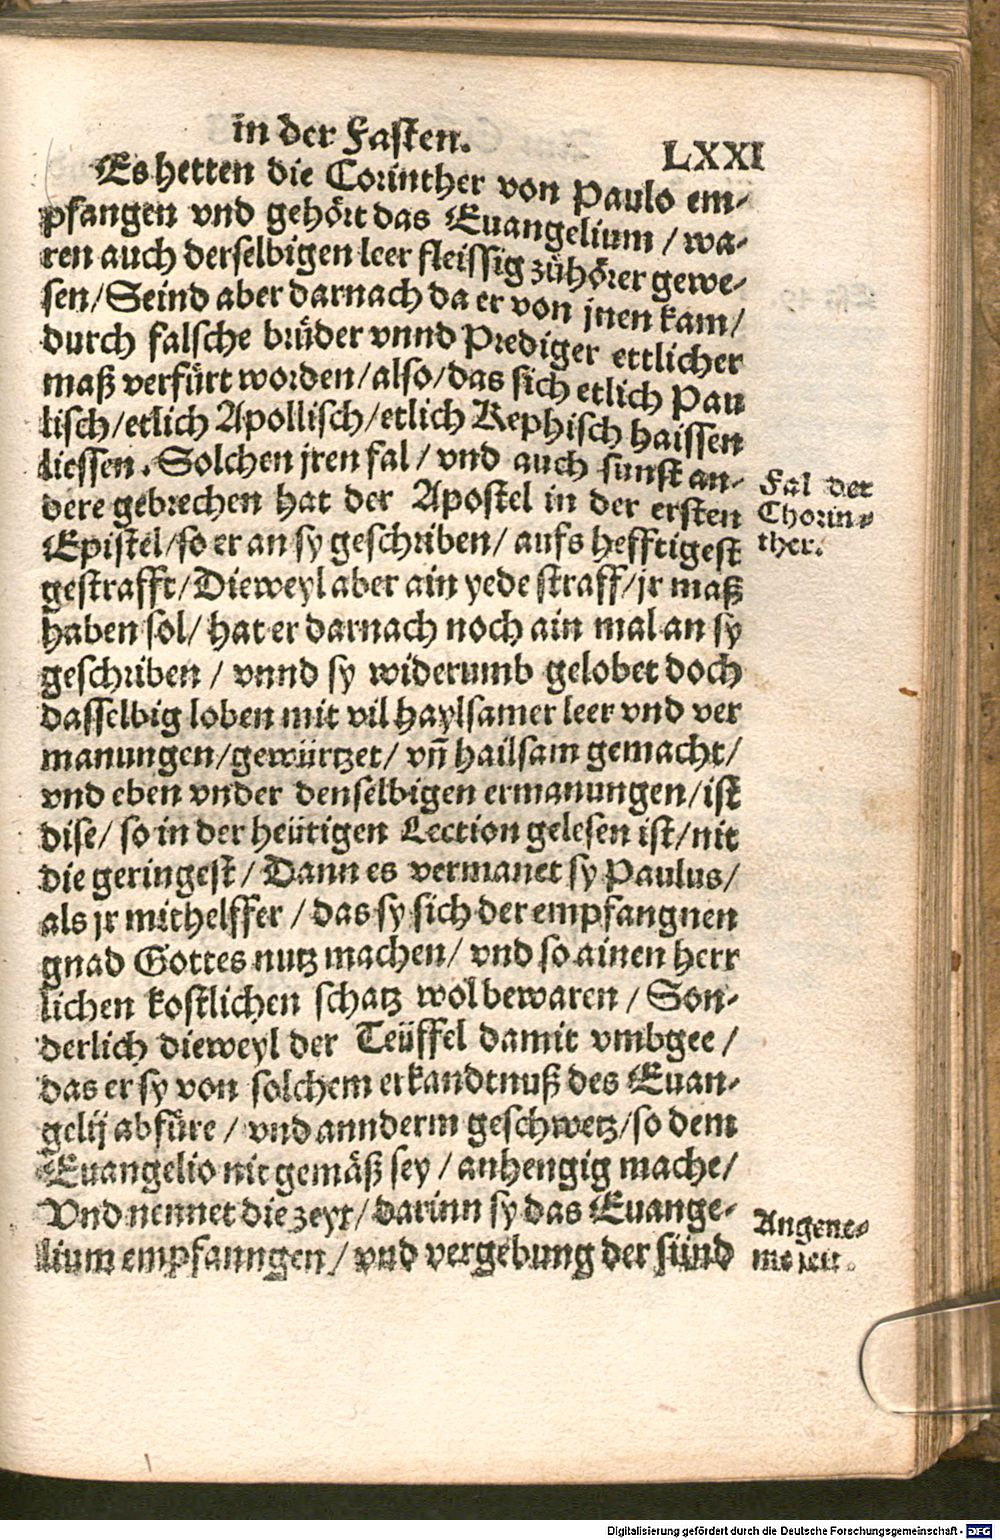 in der Fasten.
LXXI
Es hetten die Corinther von Paulo em-
pfangen vnd gehört das Euangelium / wa-
ren auch derselbigen leer fleissig zůhörer gewe-
sen/Seind aber darnach da er von jnen kam/
durch falsche brüder vnnd Prediger ettlicher
maß verfürt worden/also/das sich etlich Pau
lisch/etlich Apollisch/etlich Kephisch haissen
liessen. Solchen jren fal / vnd auch sunst an-
dere gebrechen hat der Apostel in der ersten
Epistel/so er an sy geschriben/ aufs hefftigest
gestrafft/Dieweyl aber ain yede straff/jr maß
haben sol/ hat er darnach noch ain mal an sy
geschriben / vnnd sy widerumb gelobet doch
dasselbig loben mit vil haylsamer leer vnd ver
manungen/gewürtzet/ vñ hailsam gemacht/
vnd eben vnder denselbigen ermanungen/ist
dise/ so in der heütigen Lection gelesen ist/nit
die geringest / Dann es vermanet sy Paulus/
als jr mithelffer / das sy sich der empfangnen
gnad Gottes nutz machen/ vnd so ainen herr
lichen kostlichen schatz wol bewaren / Son-
derlich dieweyl der Teüffel damit vmbgee /
das er sy von solchem erkandtnuß des Euan-
gelij abfüre / vnd annderm geschwetz/so dem
Euangelio nit gemäß sey / anhengig mache/
Vnd nennet die zeyt/ darinn sy das Euange-
lium empfanngen / vnd vergebung der sünd
Fal der
Chorin-
ther.
Angene-
me zeit.
Digitalisierung gefördert durch die Deutsche Forschungsgemeinschaft - DFG